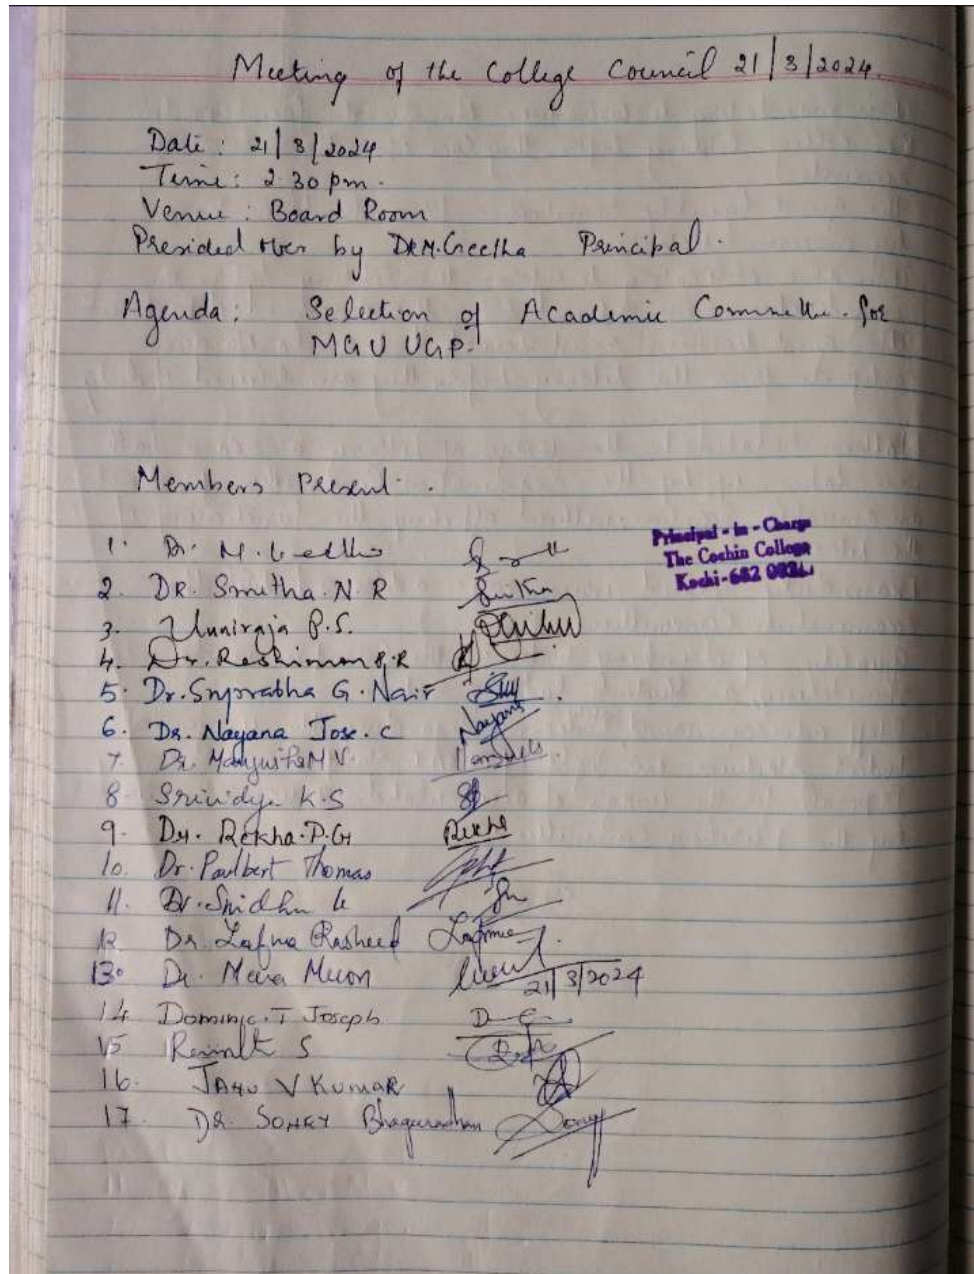 Meeting of the College Council 21/3/2024.
Date : 21/3/2024
Time : 2.30 pm.
Venue : Board Room
Presided over by Dr.M.Geetha Principal.
Agenda : Selection of Academic Committee for
MGU UGP.
Members Present.
Principal - in - Charge
The Cochin College
Kochi-682 002
1. Dr. M. Geetha
2. DR. Smitha. N. R
3. Unniraja P.S.
4. Dr. Reshimon P.R
5. Dr. Suprabha G. Nair
6. Dr. Nayana Jose. C Nayana
7. Dr. Manjusha M V.
8. Srividya K.S
9. Dr. Rekha.P.G Rekha
10. Dr. Paulbert Thomas
11. Dr. Snidhu K
12 Dr. Lafna Rasheed
13. Dr. Meera Menon
21/3/2024
14 Dominic. T Joseph
15 S
16. V KUMAR
17. DR. Bhagyanadhan